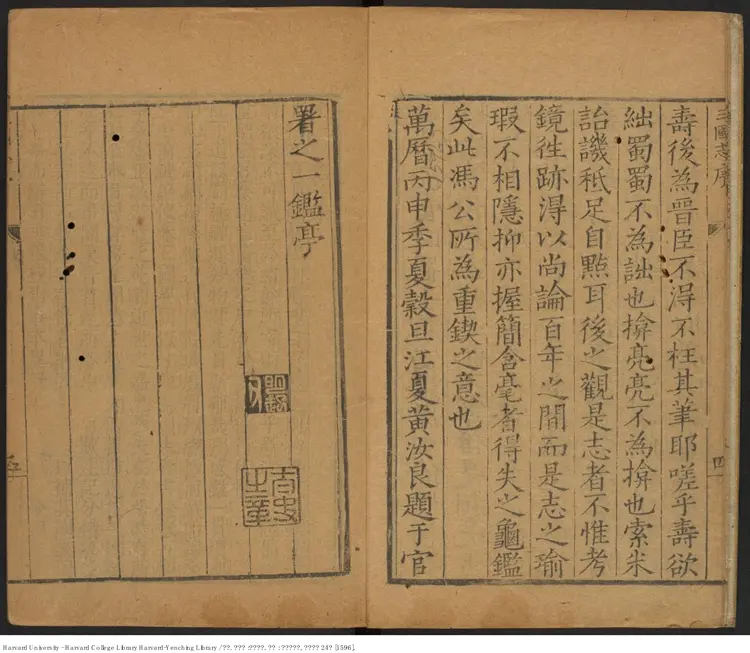 三國志序
壽後為晉臣不淂不枉其筆耶嗟乎壽欲
絀蜀蜀不為詘也揜亮亮不為揜也索米
詒譏秪足自點耳後之觀是志者不惟考
鏡徃跡淂以尚論百年之間而是志之瑜
瑕不相隱抑亦握簡含毫者得失之龜鑑
矣此馮公所為重鍥之意也
萬曆丙申季夏穀旦江夏黃汝良題于官
四
署之一鑑亭
五
Harvard University - Harvard College Library Harvard-Yenching Library / ??. ??? :????. ?? : ?????, ???? 24? [1596].